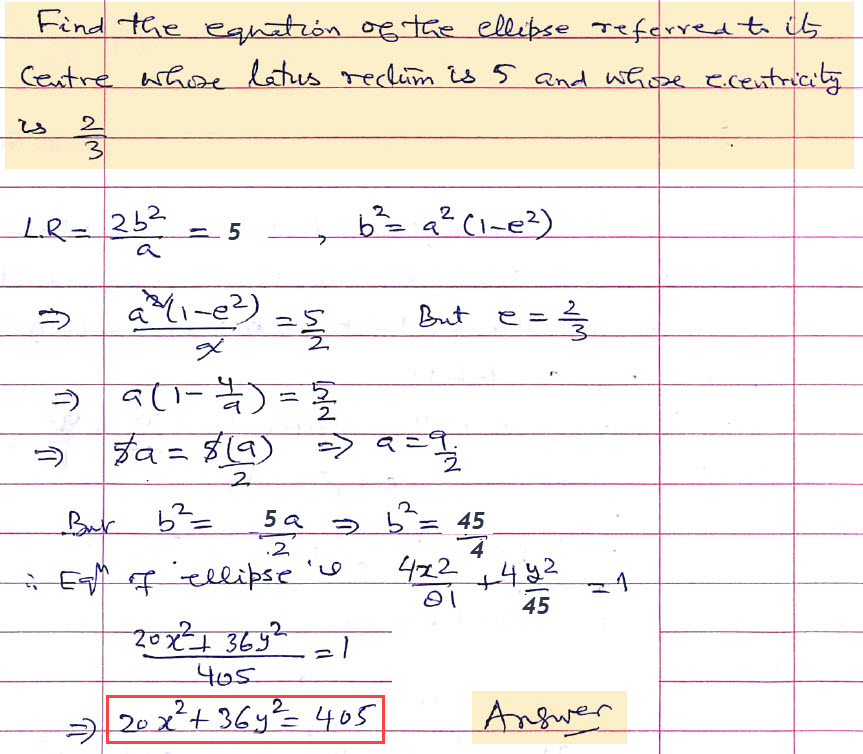 Find the equation of the ellipse referred to its
Centre whose latus rectum is 5 and whose eccentricity
is 2/3
L.R = 2b²/a = 5 , b² = a² (1-e²)
⇒ a²(1-e²)/a = 5/2 But e = 2/3
⇒ a(1-4/9) = 5/2
⇒ 5a = 5(9)/2 ⇒ a = 9/2
But b² = 5a/2 ⇒ b² = 45/4
∴ Eqⁿ of ellipse is 4x2/81 + 4y2/45 = 1
20x² + 36y²/405 = 1
⇒ 20x² + 36y² = 405 Answer